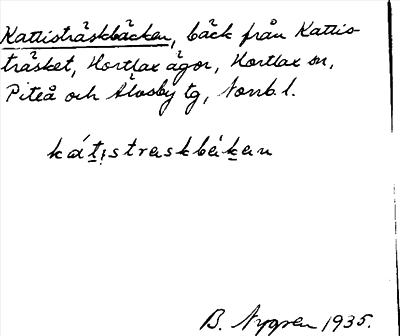 Kattisträskbäcken, bäck från Kattis-
träsket, Hortlax ägor, Hortlax sn,
Piteå och Älvsby tg, Norrb. l.
kát̠i̩straskbék̠an
B. Nygren 1935.